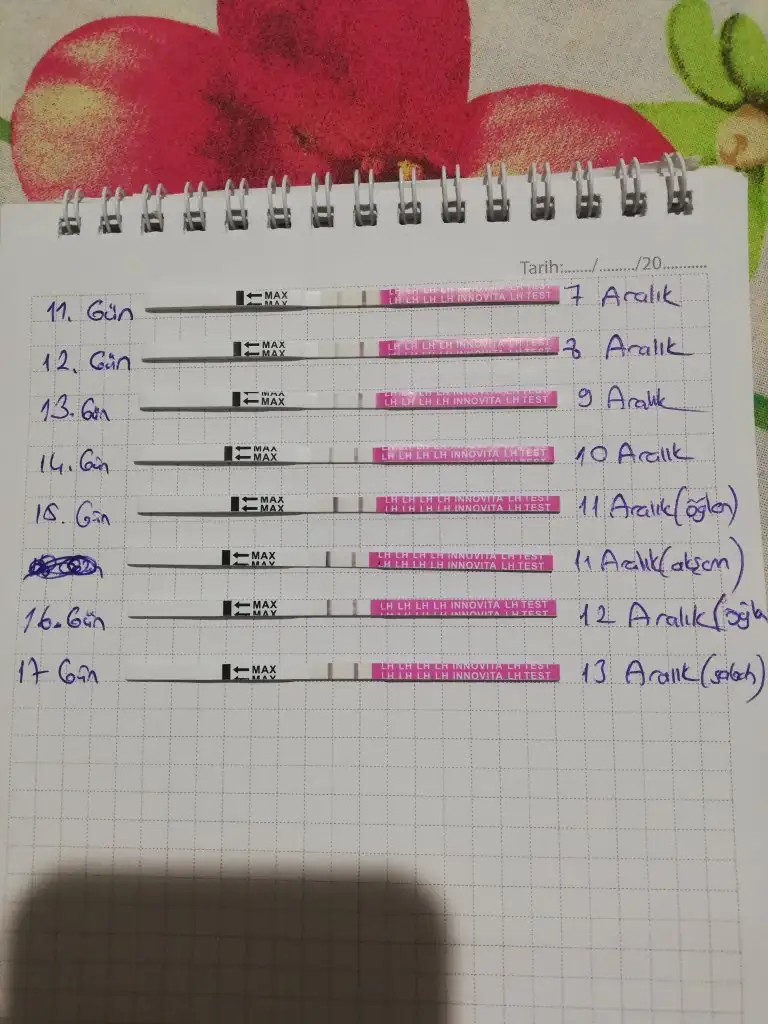 Tarih:....../......../20..........
11. Gün ← MAX ← MAX LH LH LH LH INNOVITA LH TEST 7 Aralık
12. Gün ← MAX ← MAX LH LH LH LH INNOVITA LH TEST 8 Aralık
13. Gün ← MAX ← MAX LH LH LH LH INNOVITA LH TEST 9 Aralık
14. Gün MAX ← MAX LH LH LH LH INNOVITA LH TEST 10 Aralık
15. Gün ← MAX ← MAX LH LH LH LH INNOVITA LH TEST LH LH LH LH INNOVITA LH TEST 11 Aralık (öğlen)
← MAX ← MAX LH LH LH LH INNOVITA LH TEST LH LH LH LH INNOVITA LH TEST 11 Aralık (akşam)
16. Gün ← MAX ← MAX LH LH LH LH INNOVITA LH TEST 12 Aralık (öğle
17 Gün ← MAX ← MAX LH LH LH LH INNOVITA LH TEST LH LH LH LH INNOVITA LH TEST 13 Aralık (sabah)